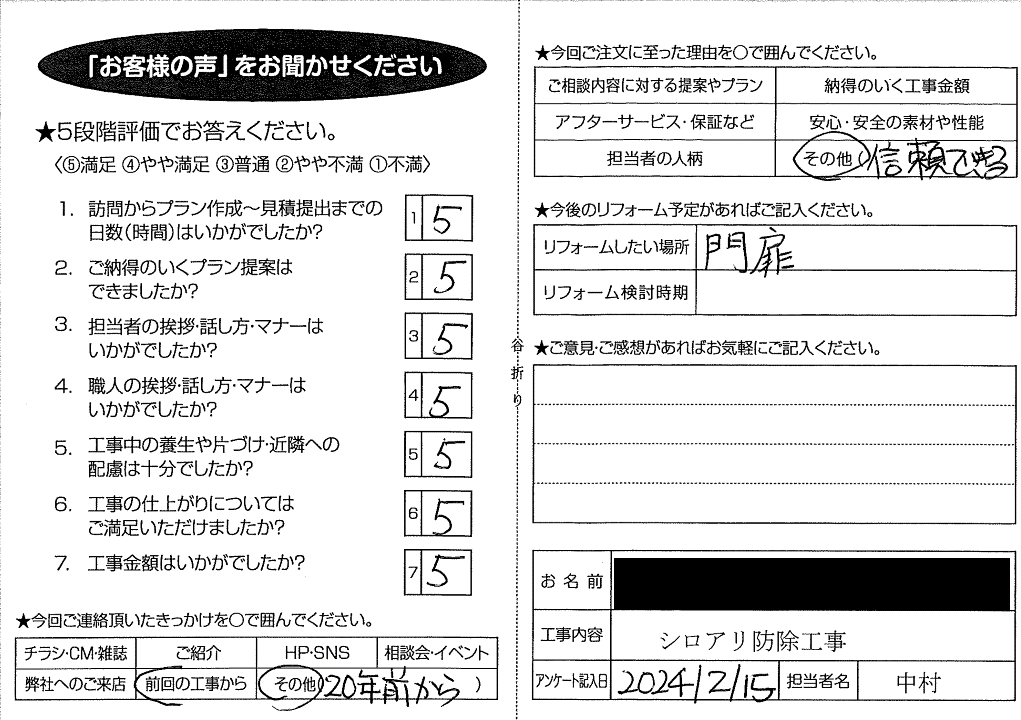 「お客様の声」をお聞かせください
★5段階評価でお答えください。
〈⑤満足 ④やや満足 ③普通 ②やや不満 ①不満〉
1. 訪問からプラン作成～見積提出までの
日数(時間)はいかがでしたか?
1 5
2. ご納得のいくプラン提案は
できましたか?
2 5
3. 担当者の挨拶・話し方・マナーは
いかがでしたか?
3 5
4. 職人の挨拶・話し方・マナーは
いかがでしたか?
4 5
5. 工事中の養生や片づけ・近隣への
配慮は十分でしたか?
5 5
6. 工事の仕上がりについては
ご満足いただけましたか?
6 5
7. 工事金額はいかがでしたか?
7 5
★今回ご連絡頂いたきっかけを〇で囲んでください。
チラシ・CM・雑誌 ご紹介 HP・SNS 相談会・イベント
弊社へのご来店 前回の工事から その他(20年前から )
谷折り
★今回ご注文に至った理由を〇で囲んでください。
ご相談内容に対する提案やプラン 納得のいく工事金額
アフターサービス・保証など 安心・安全の素材や性能
担当者の人柄 その他(信頼できる
★今後のリフォーム予定があればご記入ください。
リフォームしたい場所 門扉
リフォーム検討時期
★ご意見・ご感想があればお気軽にご記入ください。
お名前
工事内容 シロアリ防除工事
アンケート記入日 2024/2/15 担当者名 中村